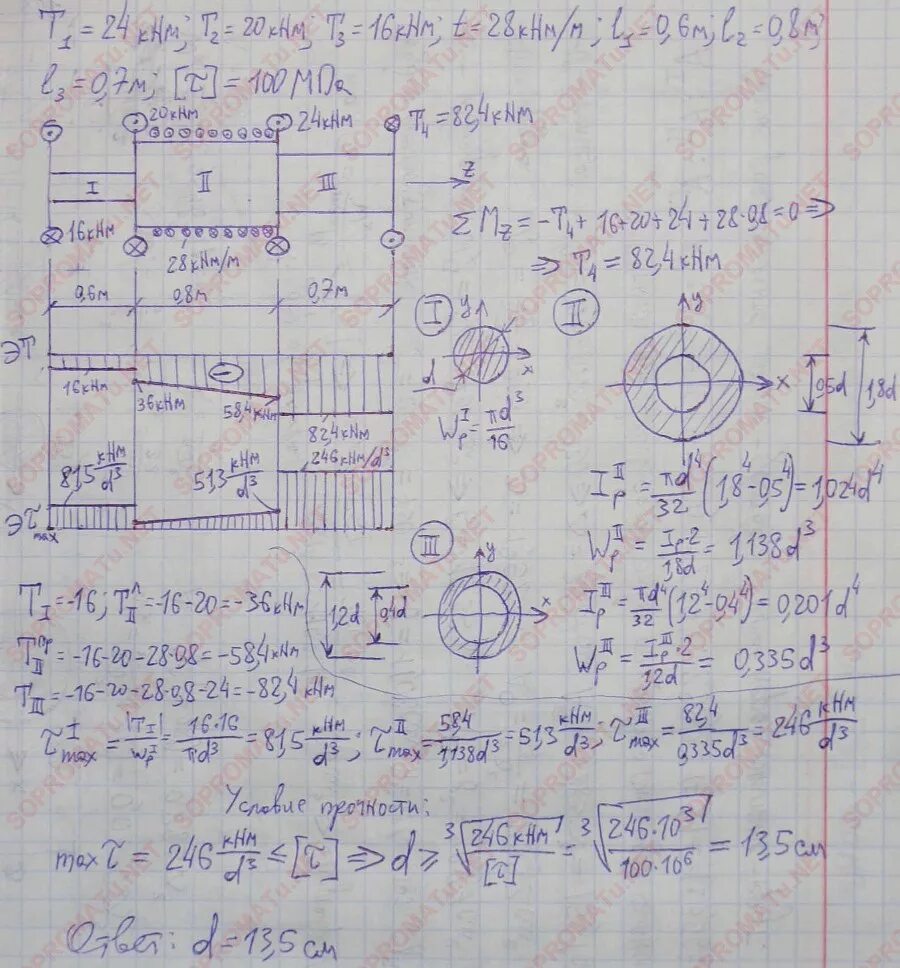 T₁ = 24 кНм; T₂ = 20 кНм; T₃ = 16 кНм; t = 28 кНм/м; l₁ = 0,6 м; l₂ = 0,8 м;
l₃ = 0,7 м; [τ] = 100 МПа
20 кНм
24 кНм
T₄ = 82,4 кНм
I
II
III
z
16 кНм
28 кНм/м
ΣM_z = -T₄ + 16 + 20 + 24 + 28·0,8 = 0 ⇒
⇒ T₄ = 82,4 кНм
0,6м
0,8м
0,7м
ЭТ
16 кНм
36 кНм
-
58,4 кНм
82,4 кНм
I
y
x
d
W_p^I = πd³/16
II
y
x
0,5d
1,8d
81,5 кНм/d³
51,3 кНм/d³
246 кНм/d³
Эτ_max
I_p^II = πd⁴/32 (1,8⁴ - 0,5⁴) = 1,024d⁴
W_p^II = I_p·2/1,8d = 1,138d³
III
y
x
1,2d
0,4d
I_p^III = πd⁴/32 (1,2⁴ - 0,4⁴) = 0,201d⁴
W_p^III = I_p^III·2/1,2d = 0,335d³
T_I = -16; T_II^л = -16-20 = -36 кНм
T_II^пр = -16-20-28·0,8 = -58,4 кНм
T_III = -16-20-28·0,8-24 = -82,4 кНм
τ_max^I = |T_I|/W_p^I = 16·16/πd³ = 81,5 кНм/d³; τ_max^II = 58,4/1,138d³ = 51,3 кНм/d³; τ_max^III = 82,4/0,335d³ = 246 кНм/d³
Условие прочности:
max τ = 246 кНм/d³ ≤ [τ] ⇒ d ≥ ³√(246 кНм/[τ]) = ³√(246·10³/100·10⁶) = 13,5 см
Ответ: d = 13,5 см
SOPROMATu.NET